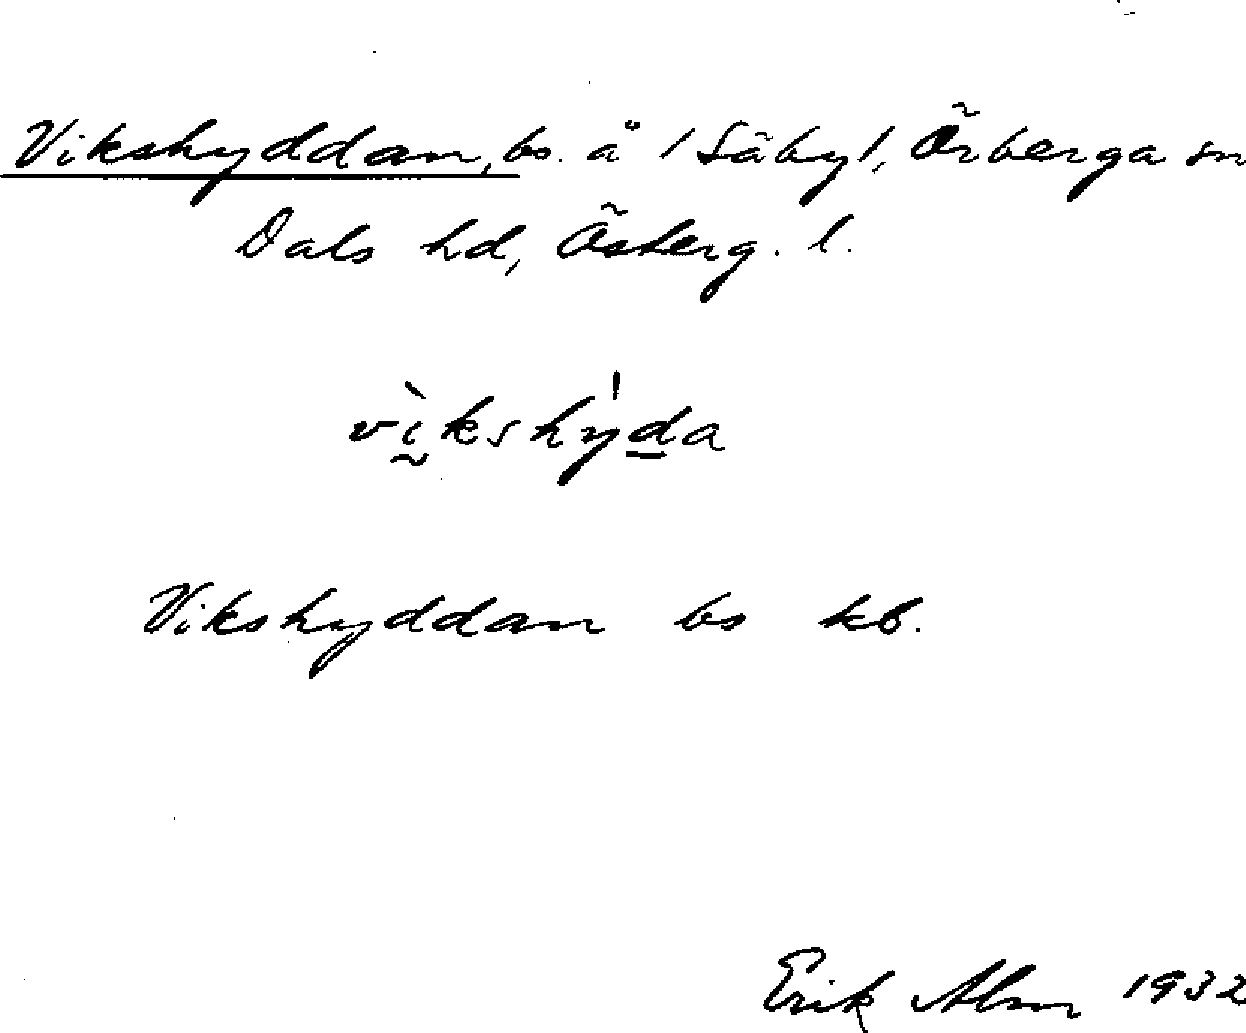 Vikshyddan, bs. å /Säby/, Örberga sn
Dals hd, Österg. l.
vìkshy̍da
Vikshyddan bs kb.
Erik Alm 1932